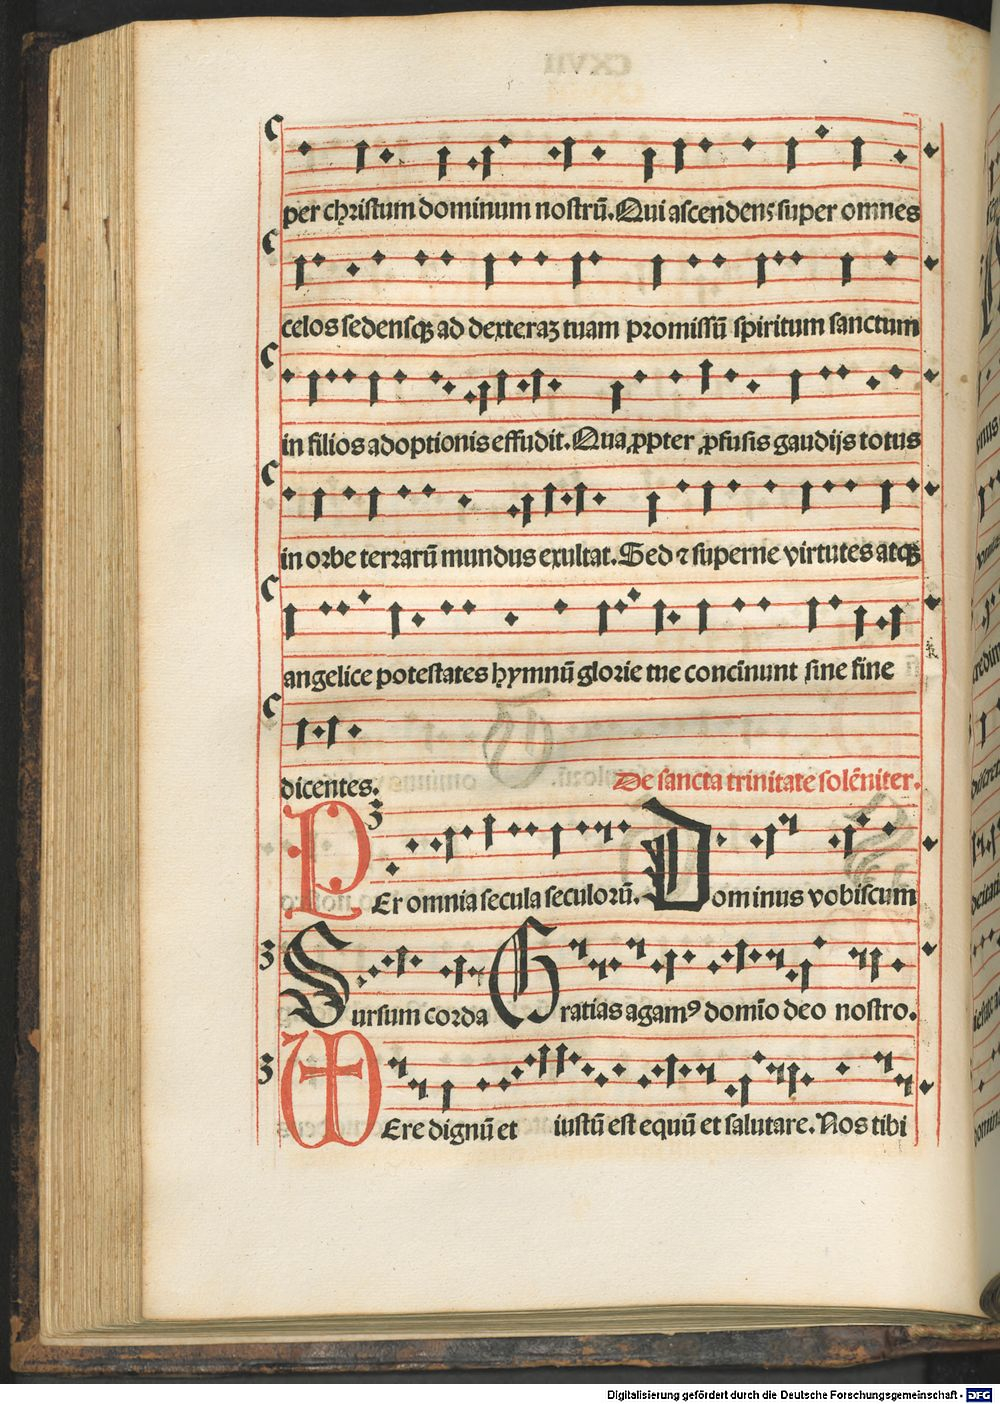 per christum dominum nostrū. Qui ascendens super omnes
celos sedensqꝫ ad dexteraꝫ tuam promissū spiritum sanctum
in filios adoptionis effudit. Qua ꝓpter ꝓfusis gaudijs totus
in orbe terrarū mundus exultat. Sed ⁊ superne virtutes atqꝫ
angelice potestates hymnū glorie tue concinunt sine fine
dicentes. De sancta trinitate solēniter.
PEr omnia secula seculorū. Dominus vobiscum
Sursum corda Gratias agamꝰ domīo deo nostro.
VEre dignū et iustū est equū et salutare. Nos tibi
Digitalisierung gefördert durch die Deutsche Forschungsgemeinschaft - DFG